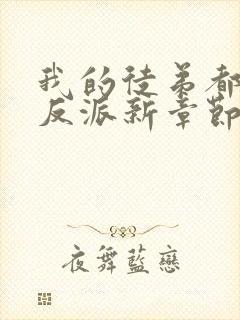 我的徒弟都
反派新章節
夜舞藍戀